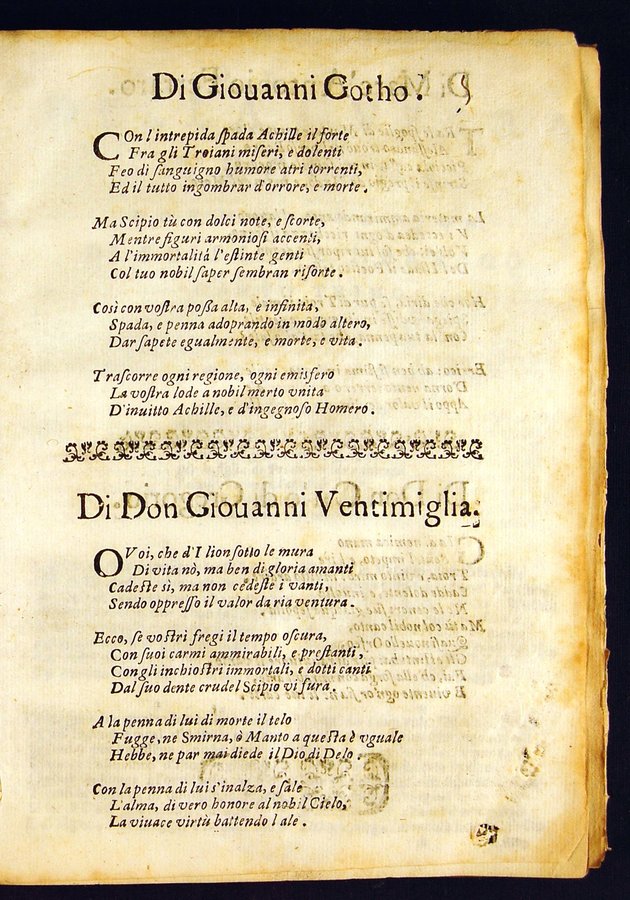 Di Giouanni Gotho.
COn l'intrepida spada Achille il forte
Fra gli Troiani miseri, e dolenti
Feo di sanguigno humore atri torrenti,
Ed il tutto ingombrar d'orrore, e morte.
Ma Scipio tù con dolci note, e scorte,
Mentre figuri armoniosi accenti,
A l'immortalità l'estinte genti
Col tuo nobil saper sembran risorte.
Così con vostra possa alta, e infinita,
Spada, e penna adoprando in modo altero,
Dar sapete egualmente, e morte, e vita.
Trascorre ogni regione, ogni emisfero
La vostra lode a nobil merto vnita
D'inuitto Achille, e d'ingegnoso Homero.
Di Don Giouanni Ventimiglia.
O Voi, che d'Ilion sotto le mura
Di vita nò, ma ben di gloria amanti
Cadeste sì, ma non cedeste i vanti,
Sendo oppresso il valor da ria ventura.
Ecco, se vostri fregi il tempo oscura,
Con suoi carmi ammirabili, e prestanti,
Con gli inchiostri immortali, e dotti canti
Dal suo dente crudel Scipio vi fura.
A la penna di lui di morte il telo
Fugge, ne Smirna, ò Manto a questa è vguale
Hebbe, ne par mai diede il Dio di Delo.
Con la penna di lui s'inalza, e sale
L'alma, di vero honore al nobil Cielo,
La viuace virtù battendo l ale.